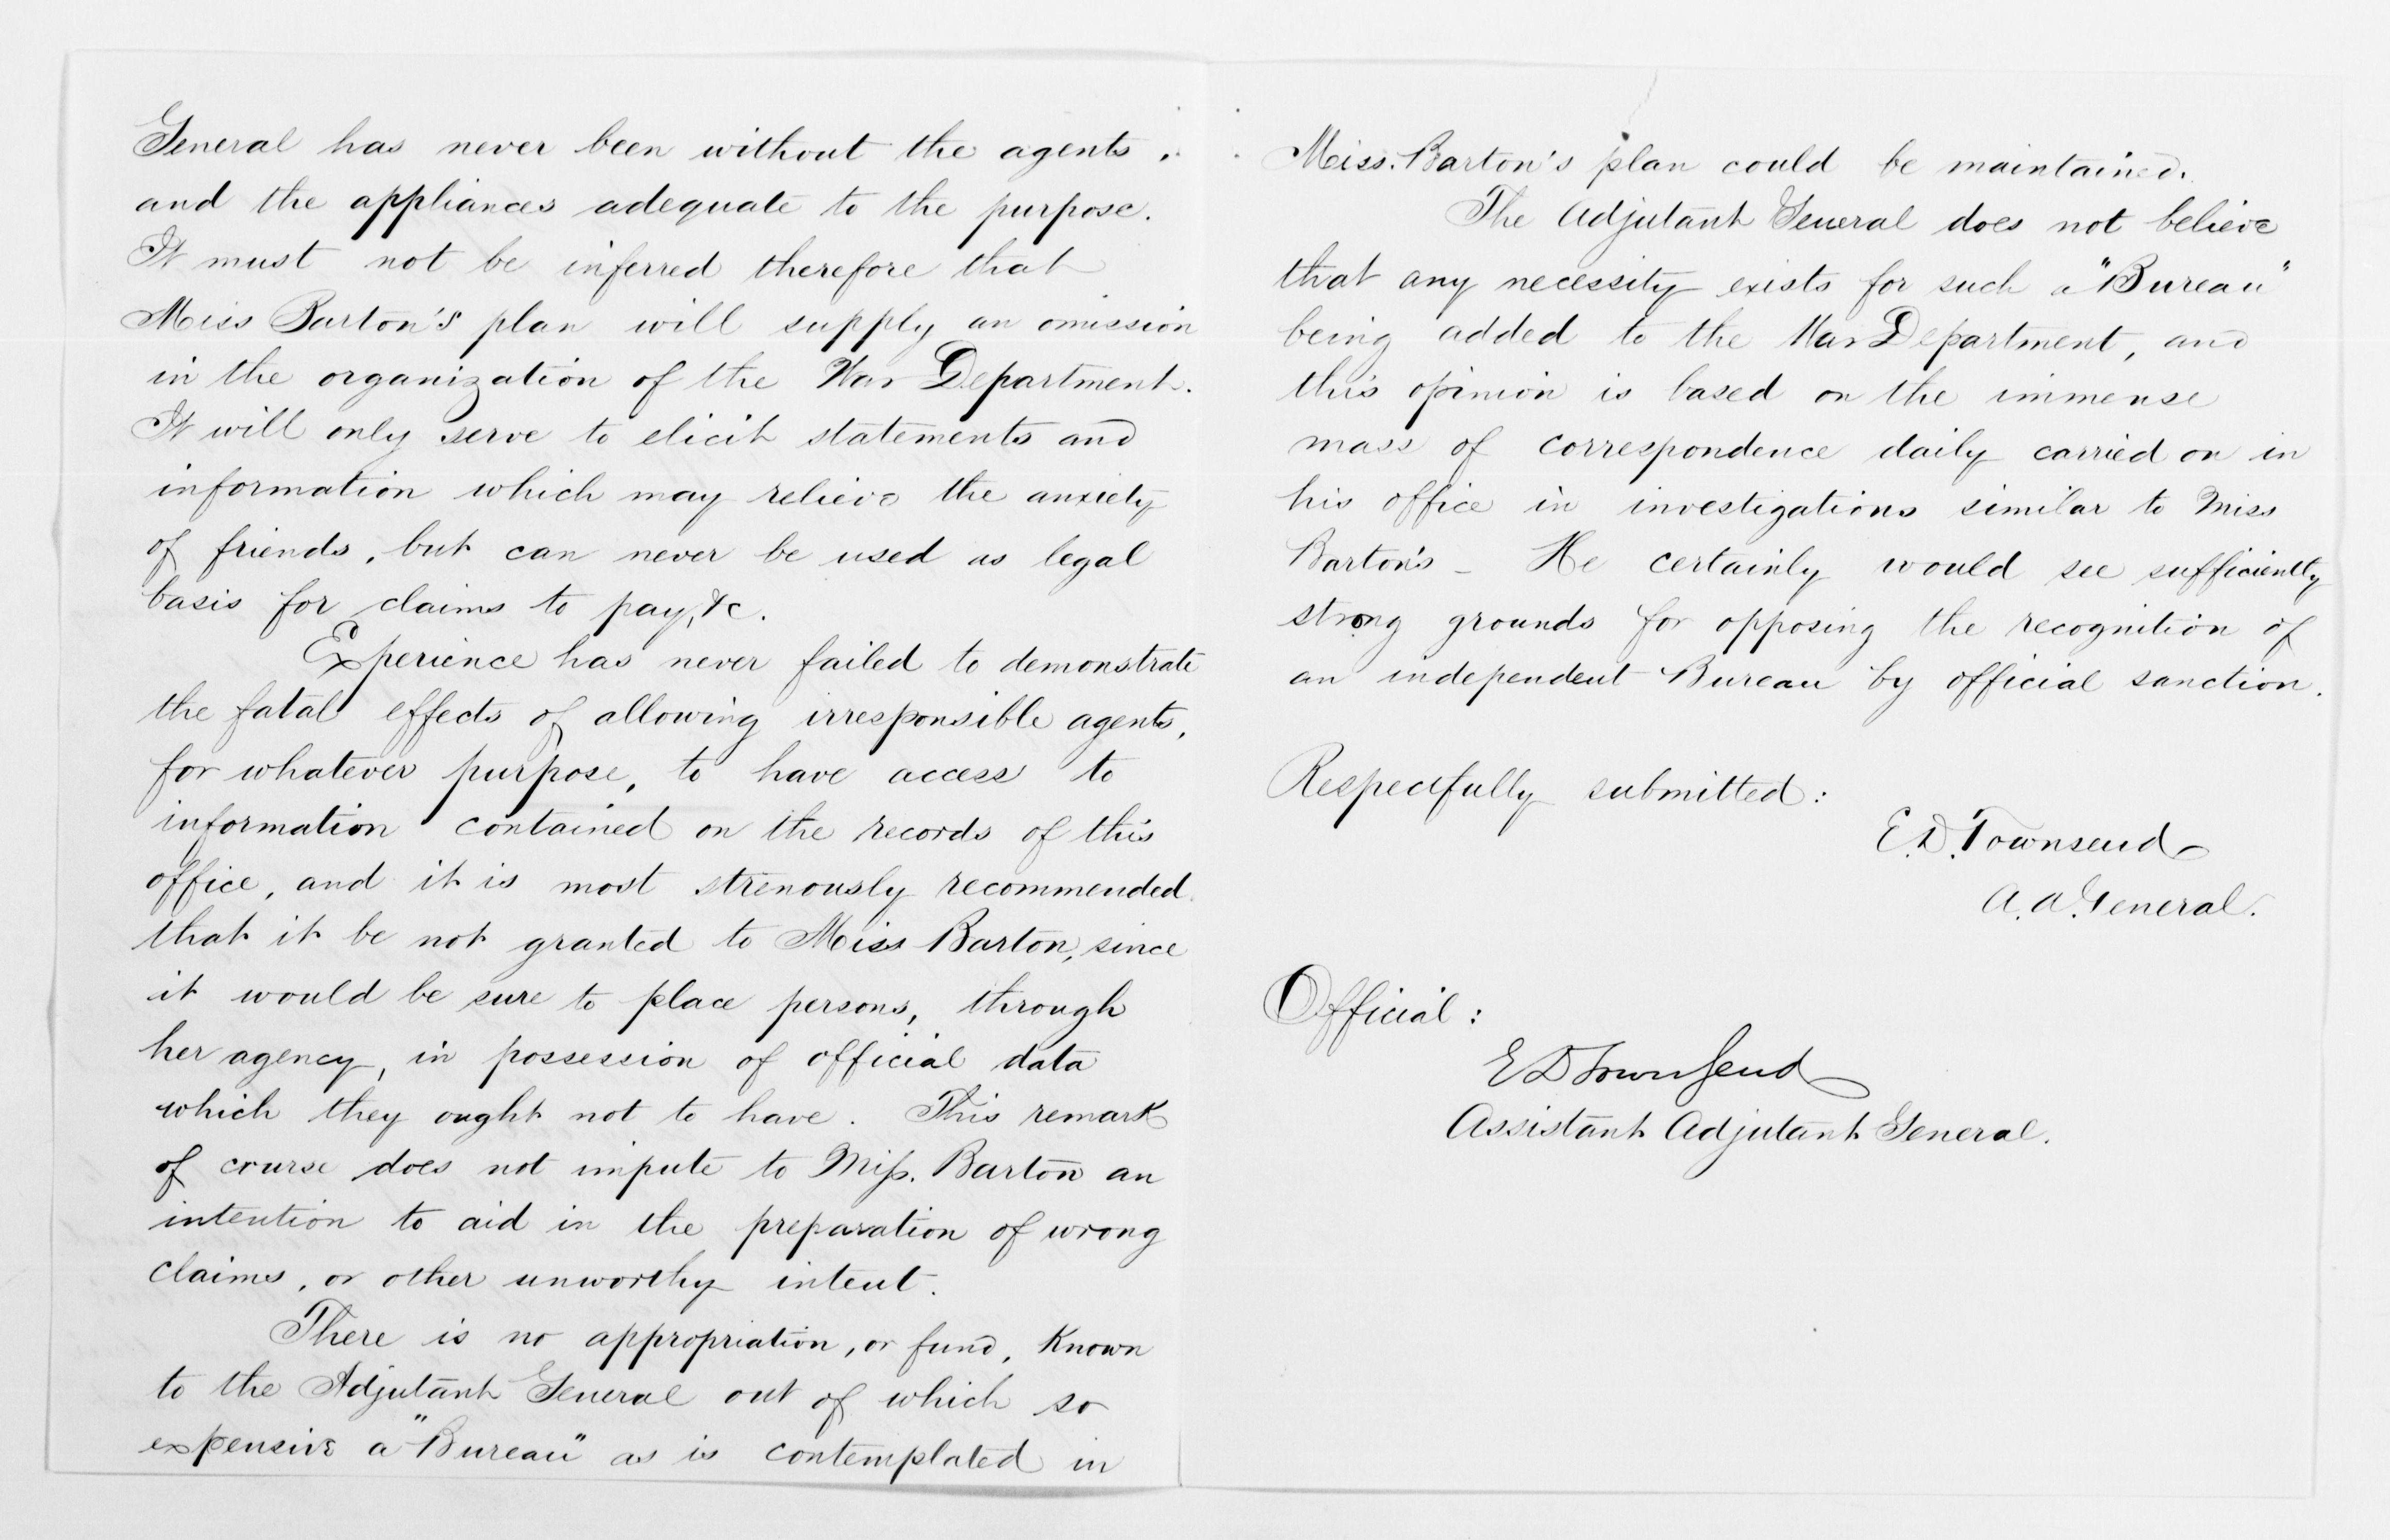 General has never been without the agents,
and the appliances adequate to the purpose.
It must not be inferred therefore that
Miss Barton's plan will supply an omission
in the organization of the War Department.
It will only serve to elicit statements and
information which may relieve the anxiety
of friends, but can never be used as legal
basis for claims to pay, &c.
Experience has never failed to demonstrate
the fatal effects of allowing irresponsible agents,
for whatever purpose, to have access to
information contained on the records of this
office, and it is most strenously recommended
that it be not granted to Miss Barton, since
it would be sure to place persons, through
her agency, in possession of official data
which they ought not to have. This remark
of course does not impute to Miss. Barton an
intention to aid in the preparation of wrong
claims, or other unworthy intent.
There is no appropriation, or fund, known
to the Adjutant General out of which so
expensive a "Bureau" as is contemplated in
Miss. Barton's plan could be maintained.
The Adjutant General does not believe
that any necessity exists for such a "Bureau"
being added to the War Department, and
this opinion is based on the immense
mass of correspondence daily carried on in
his office in investigations similar to Miss
Barton's - He certainly would see sufficiently
strong grounds for opposing the recognition of
an independent Bureau by official sanction.
Respectfully submitted:
E.D. Townsend
A.A. General.
Official:
E D Townsend
Assistant Adjutant General.